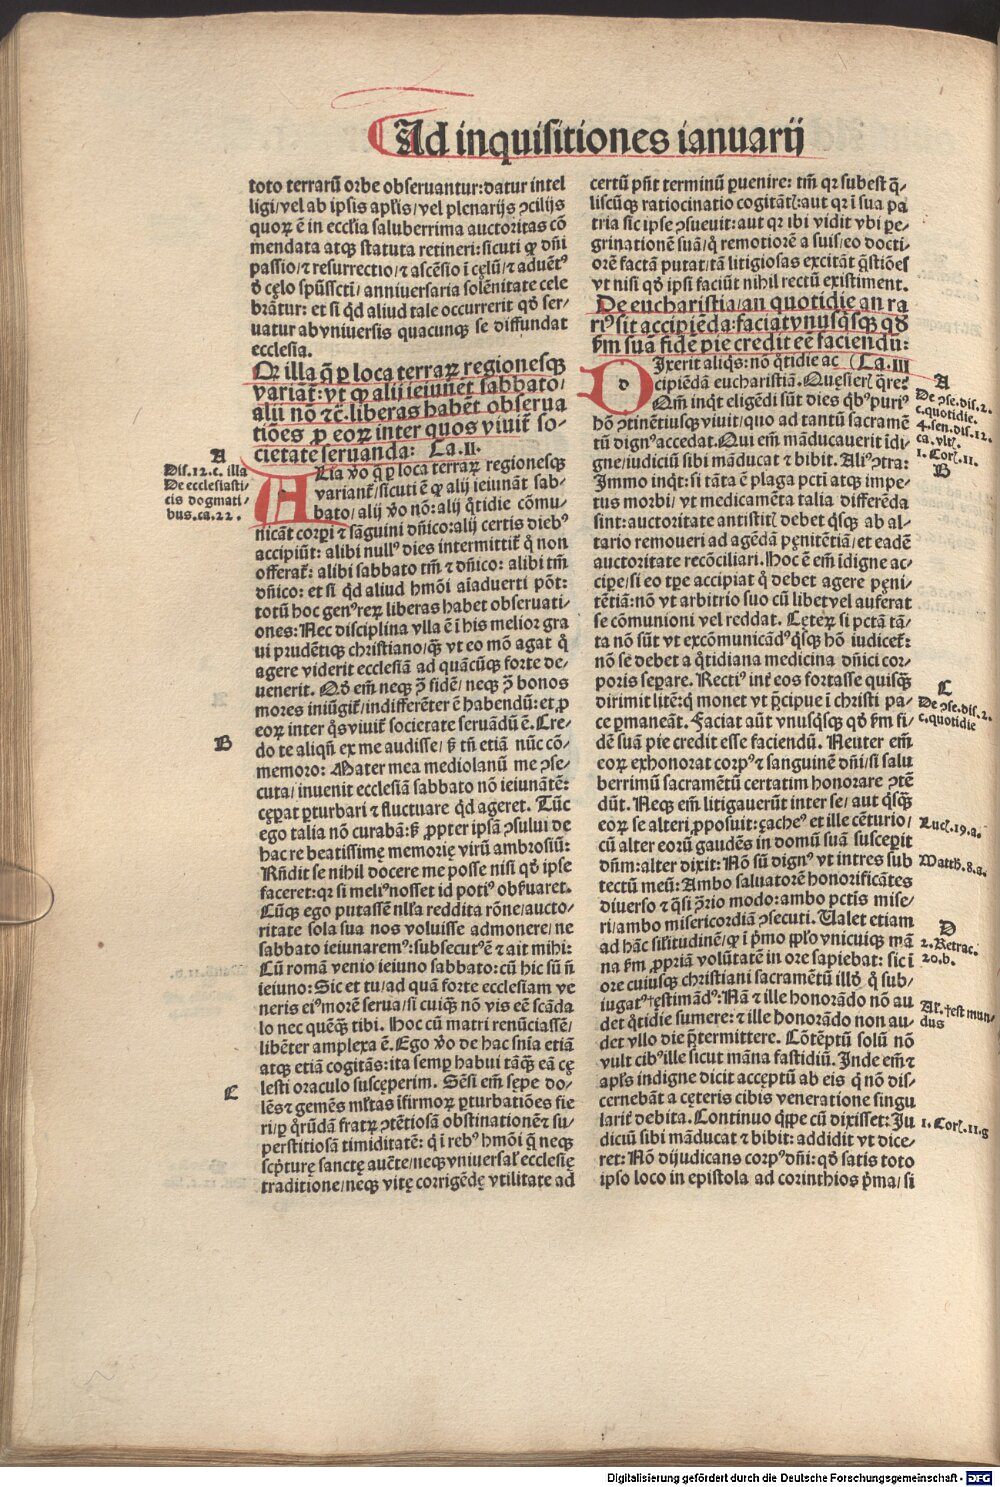 Ad inquisitiones ianuarij
toto terrarū orbe obseruantur: datur intel
ligi/ vel ab ipsis apl'is/ vel plenarijs ɔcilijs
quoꝝ ē in eccl'ia saluberrima auctoritas cō
mendata atqꝫ statuta retineri: sicuti ꝙ dn̄i
passio/ ⁊ resurrectio/ ⁊ ascēsio ī cęlū/ ⁊ aduētꝰ
d̓ cęlo spūsscti/ anniuersaria solēnitate cele
brātur: et si qd aliud tale occurrerit qd̓ ser-
uatur ab vniuersis quacunqꝫ se diffundat
ecclesia.
Qꝫ illa q̄ ꝑ loca terraꝝ regionesqꝫ
variāt᷑: vt ꝙ alij ieiunēt sabbato/
alij nō ⁊c̄. liberas habēt obserua
tiōes ꝓ eoꝝ inter quos viuit᷑ so-
cietate seruanda: Ca. II.
A
Dis. 12. c. illa
De ecclesiasti-
cis dogmati-
bus. ca. 22.
ALia v̓o q̄ ꝑ loca terraꝝ regionesqꝫ
variant᷑/ sicuti ē ꝙ alij ieiunāt sab-
bato/ alij v̓o nō: alij q̇tidie cōmu-
nicāt corpi ⁊ sāguini dn̄ico: alij certis diebꝰ
accipiūt: alibi nullꝰ dies intermittit᷑ q̇ non
offerat᷑: alibi sabbato tm̄ ⁊ dn̄ico: alibi tm̄
dn̄ico: et si qd aliud hmōi aīaduerti pōt:
totū hoc genꝰ reꝝ liberas habet obseruati-
ones: Nec disciplina vlla ē ī his melior gra
ui prudētiqꝫ christiano/ qꝫ vt eo mō agat q̇
agere viderit ecclesiā ad quācūqꝫ forte de-
uenerit. Qd̓ em̄ neqꝫ ↄ̄ fidē/ neqꝫ ↄ̄ bonos
mores iniūgit᷑/ indifferēter ē habendū: et ꝓ
eoꝝ inter q̇s viuit᷑ societate seruādū ē. Cre-
B
do te aliqn̄ ex me audisse/ ꝫ tn̄ etiā nūc cō-
memoro: Mater mea mediolanū me ɔse-
cuta/ inuenit ecclesiā sabbato nō ieiunātē:
cęꝑat ꝑturbari ⁊ fluctuare qd ageret. Tūc
ego talia nō curabā: ꝫ ꝓpter ipsā ɔsului de
hac re beatissimę memorię virū ambrosiū:
Rn̄dit se nihil docere me posse nisi qd̓ ipse
faceret: qꝛ si meliꝰ nosset id potiꝰ obẜuaret.
Cūqꝫ ego putassē nl'la reddita rōne/ aucto-
ritate sola sua nos voluisse admonere/ ne
sabbato ieiunaremꝰ: subsecutꝰ ē ⁊ ait mihi:
Cū romā venio ieiuno sabbato: cū hic sū n̄
ieiuno: Sic et tu/ ad quā forte ecclesiam ve
neris eiꝰ morē serua/ si cuiqꝫ nō vis eē scāda
lo nec quēqꝫ tibi. Hoc cū matri renūciassē/
libēter amplexa ē. Ego v̓o de hac sn̄ia etiā
atqꝫ etiam cogitās: ita semꝑ habui tāqꝫ eā cę
lesti oraculo suscęperim. Sēsi em̄ sępe do-
C
lēs ⁊ gemēs ml'tas īfirmoꝝ ꝑturbatiōes fie
ri/ ꝑ q̇rūdā fratꝝ ɔtētiosā obstinationē ⁊ su-
perstitiosā timiditatē: q̇ ī rebꝰ hmōi q̇ neqꝫ
scp̄turę sanctę auc̄te/ neqꝫ vniuersal' ecclesię
traditione/ neqꝫ vitę corrigēdę vtilitate ad
certū pn̄t terminū ꝑuenire: tm̄ qꝛ subest q̄-
liscūqꝫ ratiocinatio cogitāt᷑: aut qꝛ ī sua pa
tria sic ipse ɔsueuit: aut qꝛ ibi vidit vbi ꝑe-
grinationē suā/ q̇ remotiorē a suis/ eo docti-
orē factā putat/ tā litigiosas excitāt q̄stiōes
vt nisi qd̓ ipsi faciūt nihil rectū existiment.
De eucharistia/ an quotidie an ra
riꝰ sit accipiēda: faciat vnusqꝫsqꝫ qd̓
ẜm suā fidē pie credit eē faciendū:
Ca. III
DIxerit aliqs: nō q̇tidie ac
cipiēdā eucharistiā. Quęsier᷑ q̄re?
Qm̄ inqt eligēdi sūt dies qbꝰ puriꝰ
hō ɔtinētiusqꝫ viuit/ quo ad tantū sacramē
tū dignꝰ accedat. Qui em̄ māducauerit īdi-
gne/ iudiciū sibi māducat ⁊ bibit. Aliꝰ ɔtra:
Immo inqt: si tāta ē plaga pctī atqꝫ impe-
tus morbi/ vt medicamēta talia differēda
sint: auctoritate antistit᷑ debet qsqꝫ ab al-
tario remoueri ad agēdā pęnitētiā/ et eadē
auctoritate recōciliari. Hoc ē em̄ īdigne ac-
cipe/ si eo tꝑe accipiat q̇ debet agere pęni-
tētiā: nō vt arbitrio suo cū libet vel auferat
se cōmunioni vel reddat. Cęteꝝ si pctā tā-
ta nō sūt vt excōmunicādꝰ qsqꝫ hō iudicet᷑:
nō se debet a q̇tidiana medicina dn̄ici cor-
poris seꝑare. Rectiꝰ int᷑ eos fortasse quisqꝫ
dirimit litē: q̇ monet vt p̄cipue ī christi pa-
ce ꝑmaneāt. Faciat aūt vnusqsqꝫ qd̓ ẜm fi-
dē suā pie credit esse faciendū. Neuter em̄
eoꝝ exhonorat corpꝰ ⁊ sanguinē dn̄i/ si salu
berrimū sacramētū certatim honorare ɔtē
dūt. Neqꝫ em̄ litigauerūt inter se/ aut qsqꝫ
eoꝝ se alteri ꝓposuit: çacheꝰ et ille cēturio/
cū alter eorū gaudēs in domū suā susceꝑit
dn̄m: alter dixit: Nō sū dignꝰ vt intres sub
tectū meū: Ambo saluatorē honorificātes
diuerso ⁊ qsi ↄ̄rio modo: ambo pctīs mise-
ri/ ambo misericordiā ɔsecuti. Ualet etiam
ad hāc sil'itudinē/ ꝙ ī p̄mo pp̄lo vnicuiqꝫ mā
na ẜm ꝓpriā volūtatē in ore sapiebat: sic ī
ore cuiusqꝫ christiani sacramētū illd̓ q̇ sub-
iugatꝰ †estimādꝰ: Nā ⁊ ille honorādo nō au
det q̇tidie sumere: ⁊ ille honorādo non au-
det vllo die p̄termittere. Cōtēptū solū nō
vult cibꝰ ille sicut māna fastidiū. Inde em̄ ⁊
apl's indigne dicit accęptū ab eis q̇ nō dis-
cernebāt a cęteris cibis veneratione singu
larit᷑ debita. Continuo qppe cū dixisset: Ju
diciū sibi māducat ⁊ bibit: addidit vt dice-
ret: Nō dijudicans corpꝰ dn̄i: qd̓ satis toto
ipso loco in epistola ad corinthios p̄ma/ si
A
De ɔse. dis. 2.
c. quotidie.
4. sen. dis. 12.
ca. vlt᷑.
1. Cor᷑. 11.
B
C
De ɔse. dis. 2.
c. quotidie
Luc᷑. 19. a.
Matth. 8. a.
D
2. Retrac.
20. b.
Al'. †est mun-
dus
1. Cor᷑. 11. g
Digitalisierung gefördert durch die Deutsche Forschungsgemeinschaft - DFG